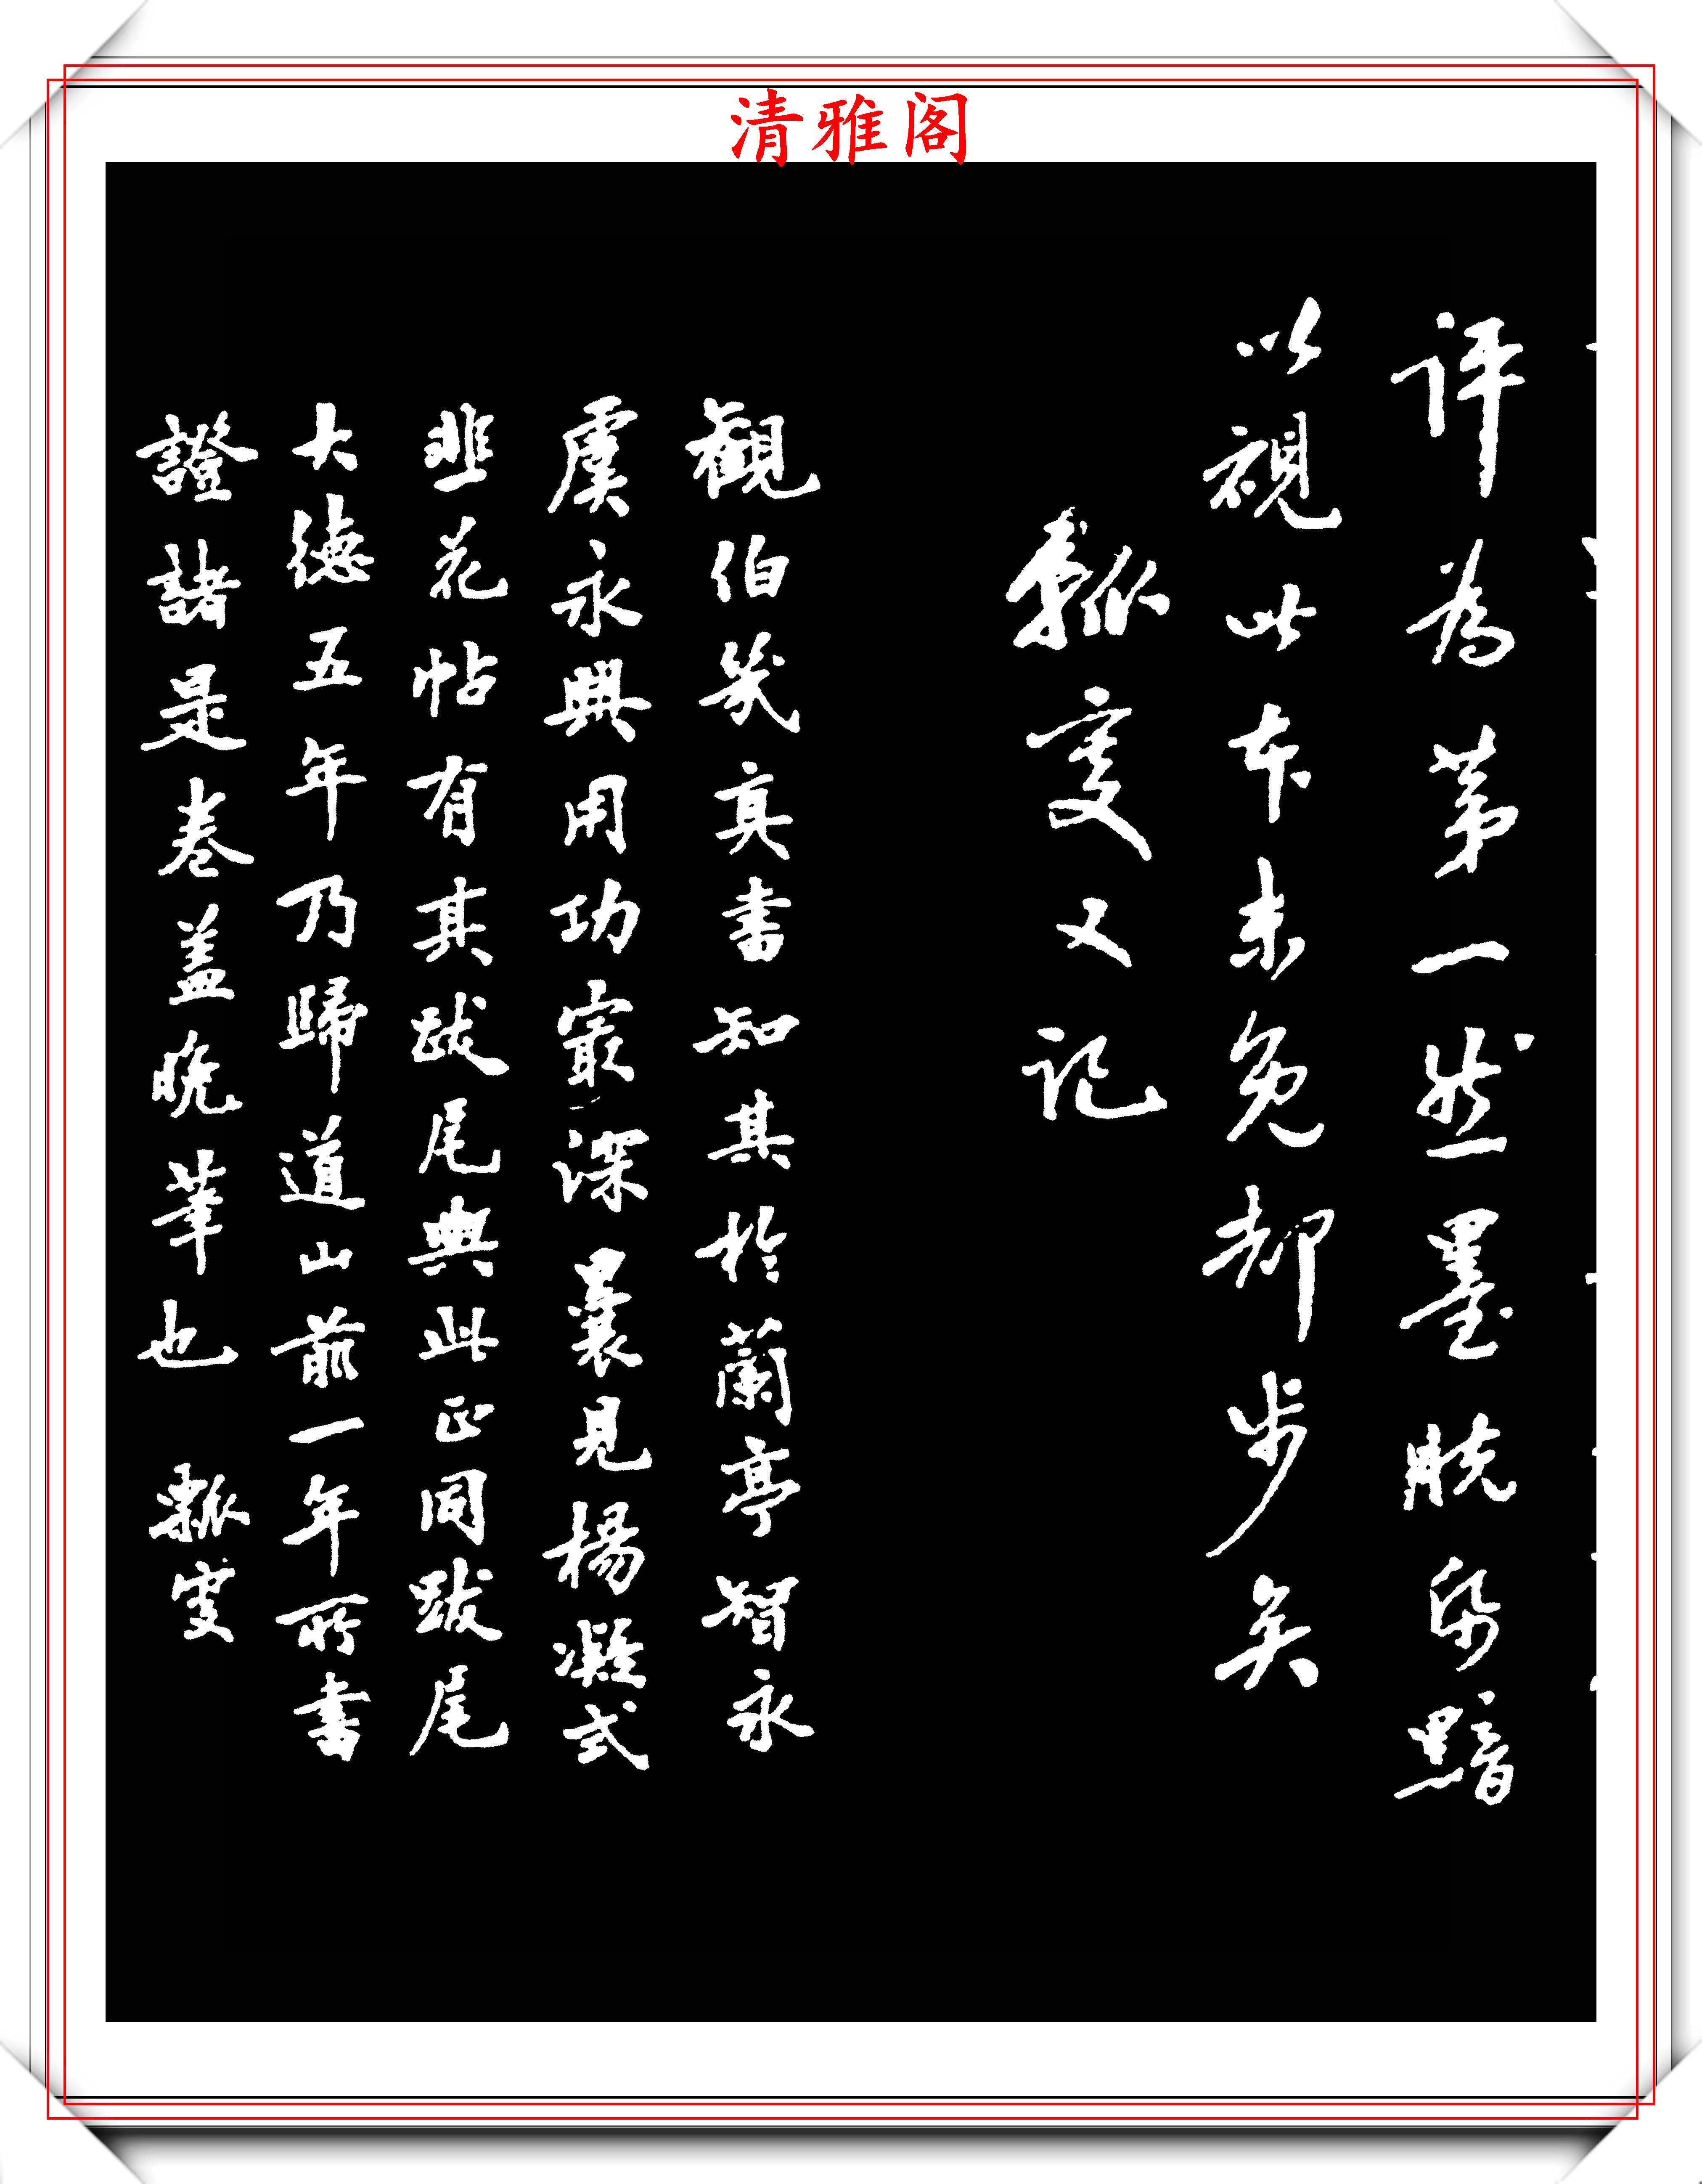 清雅阁
评為第一然墨脱帋黯
以視此本未免却步矣
瓢叟又记
觀伯幾真書知其於蘭亭智永
虞永興用功最深曩見楊凝式
韭花帖有其跋尾與此正同跋尾
大德五年乃歸道山前一年所書
證諸是卷蓋晚筆也 瓢叟